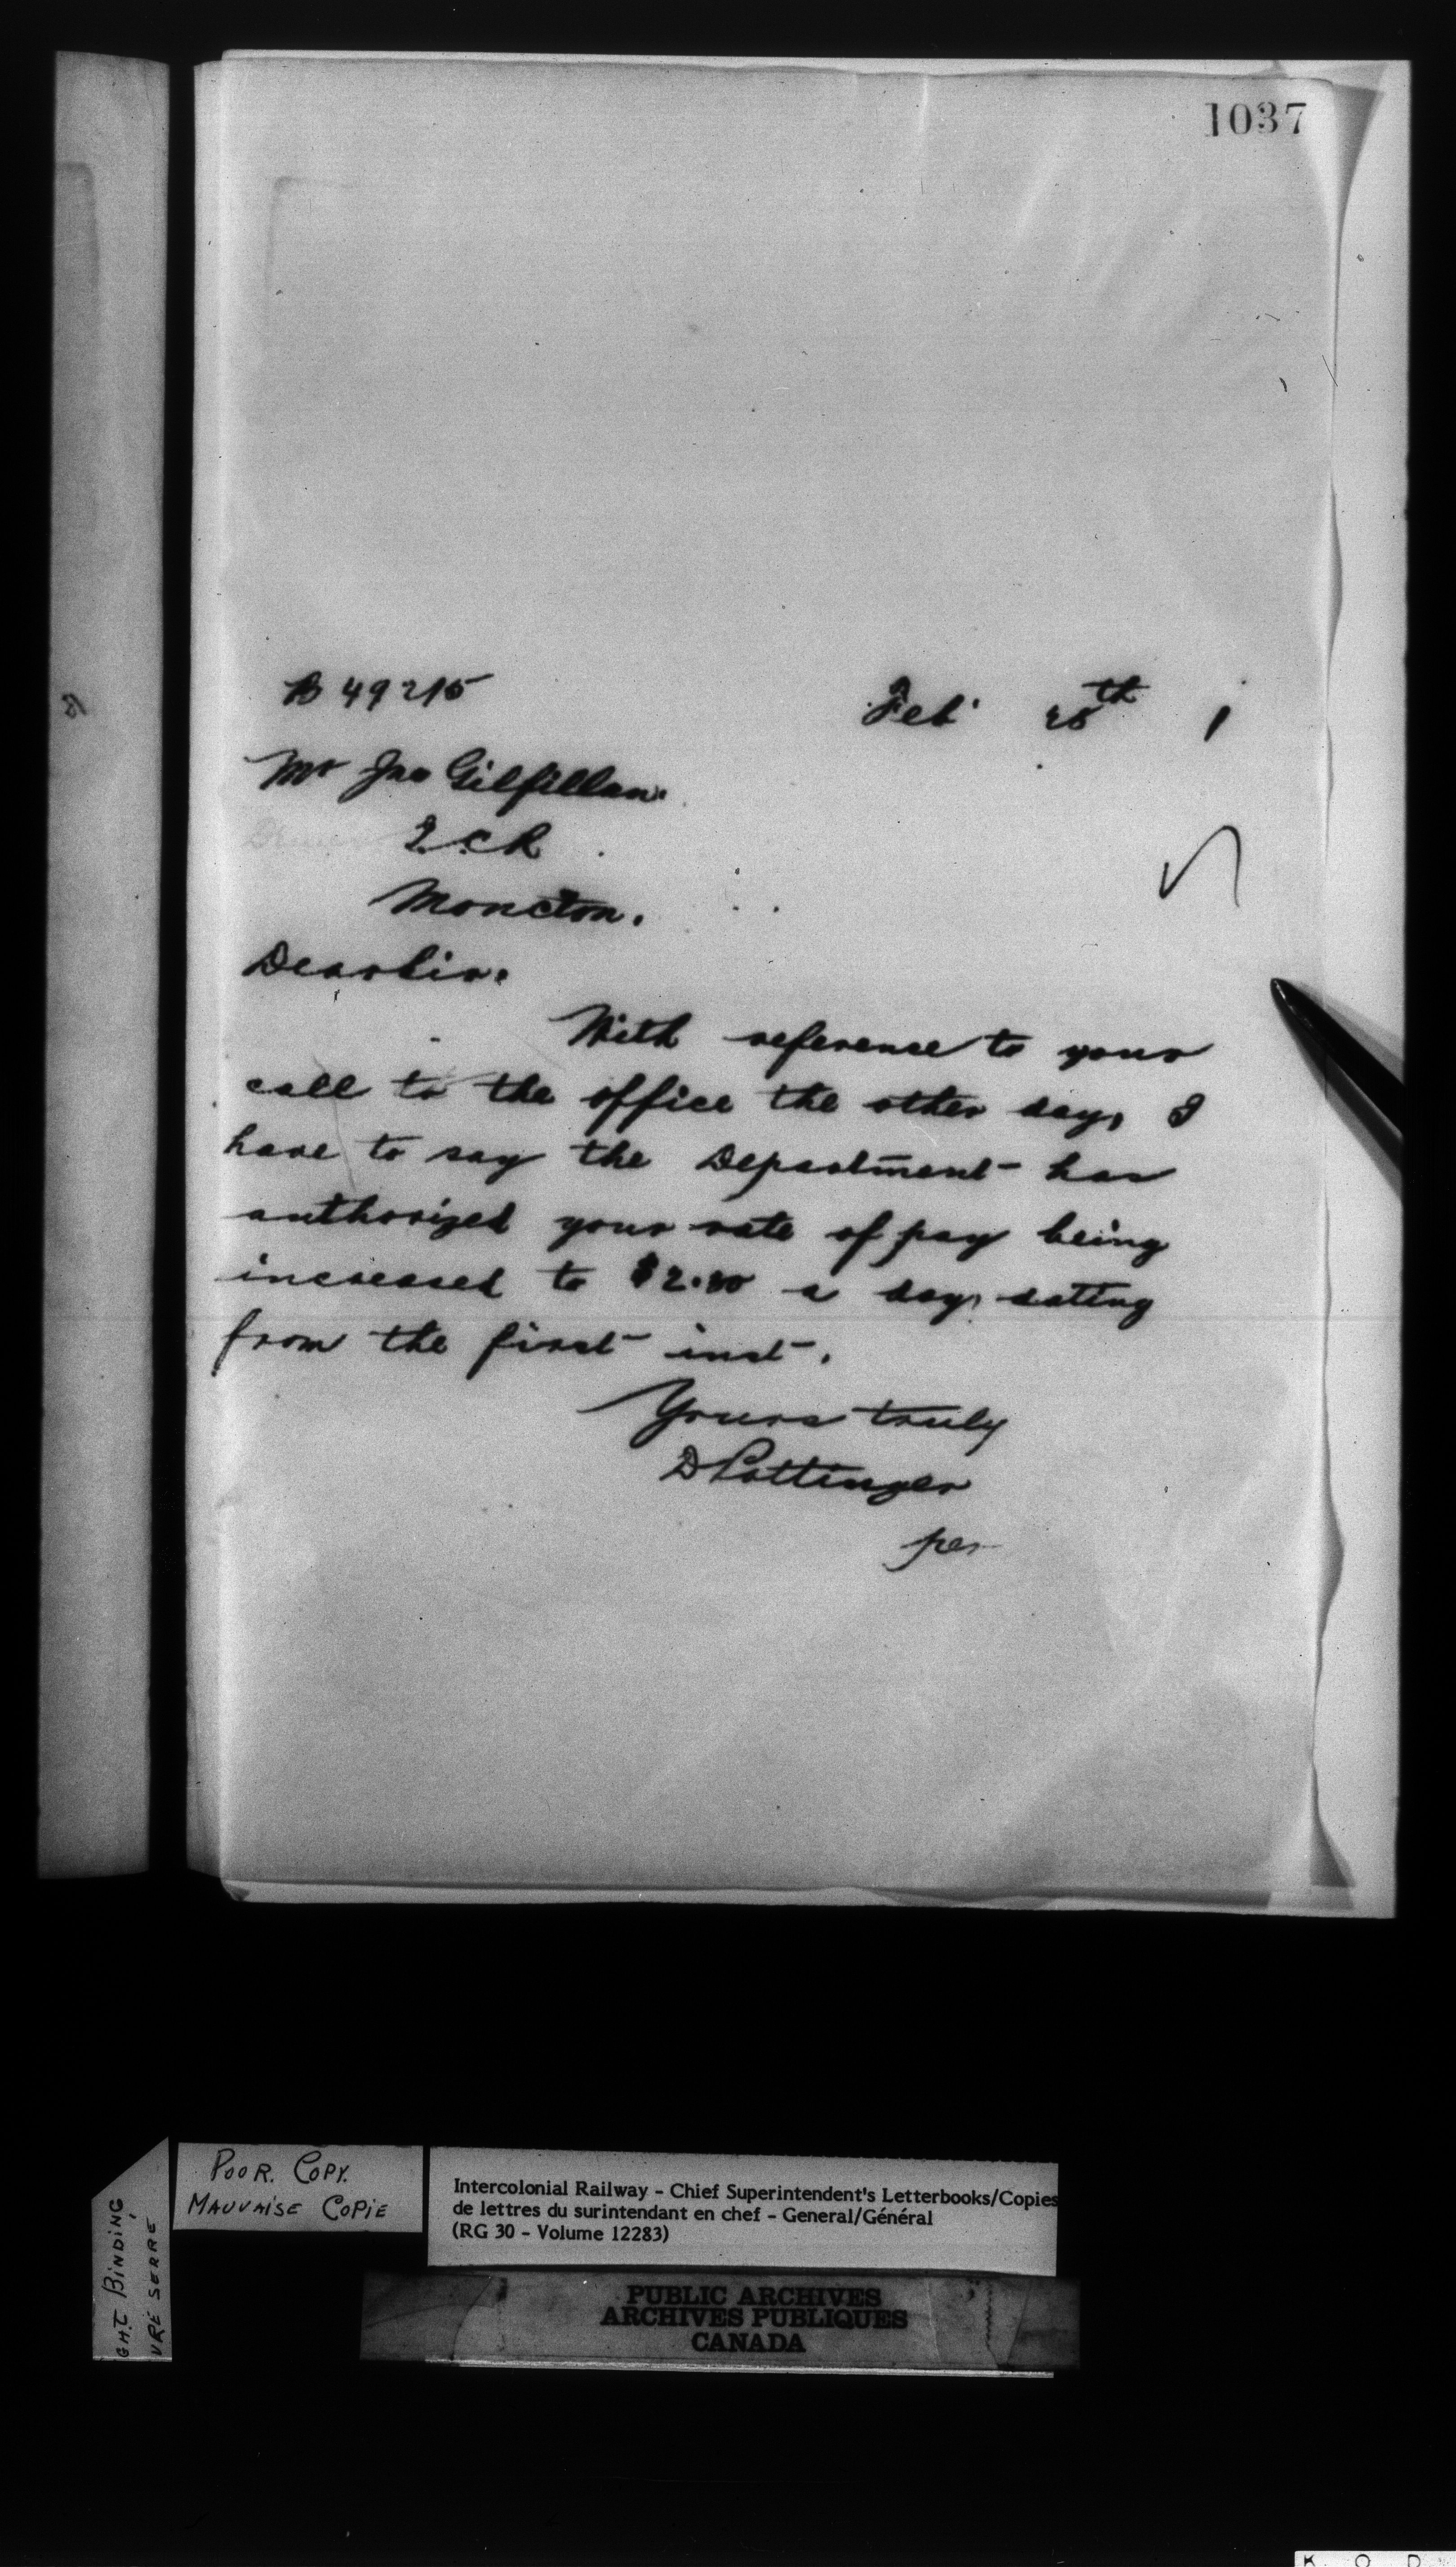 1037
B 49215
Feb' 25th 1
Mr Jas Gilfillan.
I.C.R.
Moncton.
Dear Sir.
With reference to your
call to the office the other day, I
have to say the Department has
authorized your rate of pay being
increased to a day, dating
from the first inst.
Yours truly
D Pottinger
per
POOR. COPY.
MAUVAISE COPIE
Intercolonial Railway - Chief Superintendent's Letterbooks/Copies
de lettres du surintendant en chef - General/Général
(RG 30 - Volume 12283)
GHT BINDING
VRE SERRE
PUBLIC ARCHIVES
ARCHIVES PUBLIQUES
CANADA
K O D